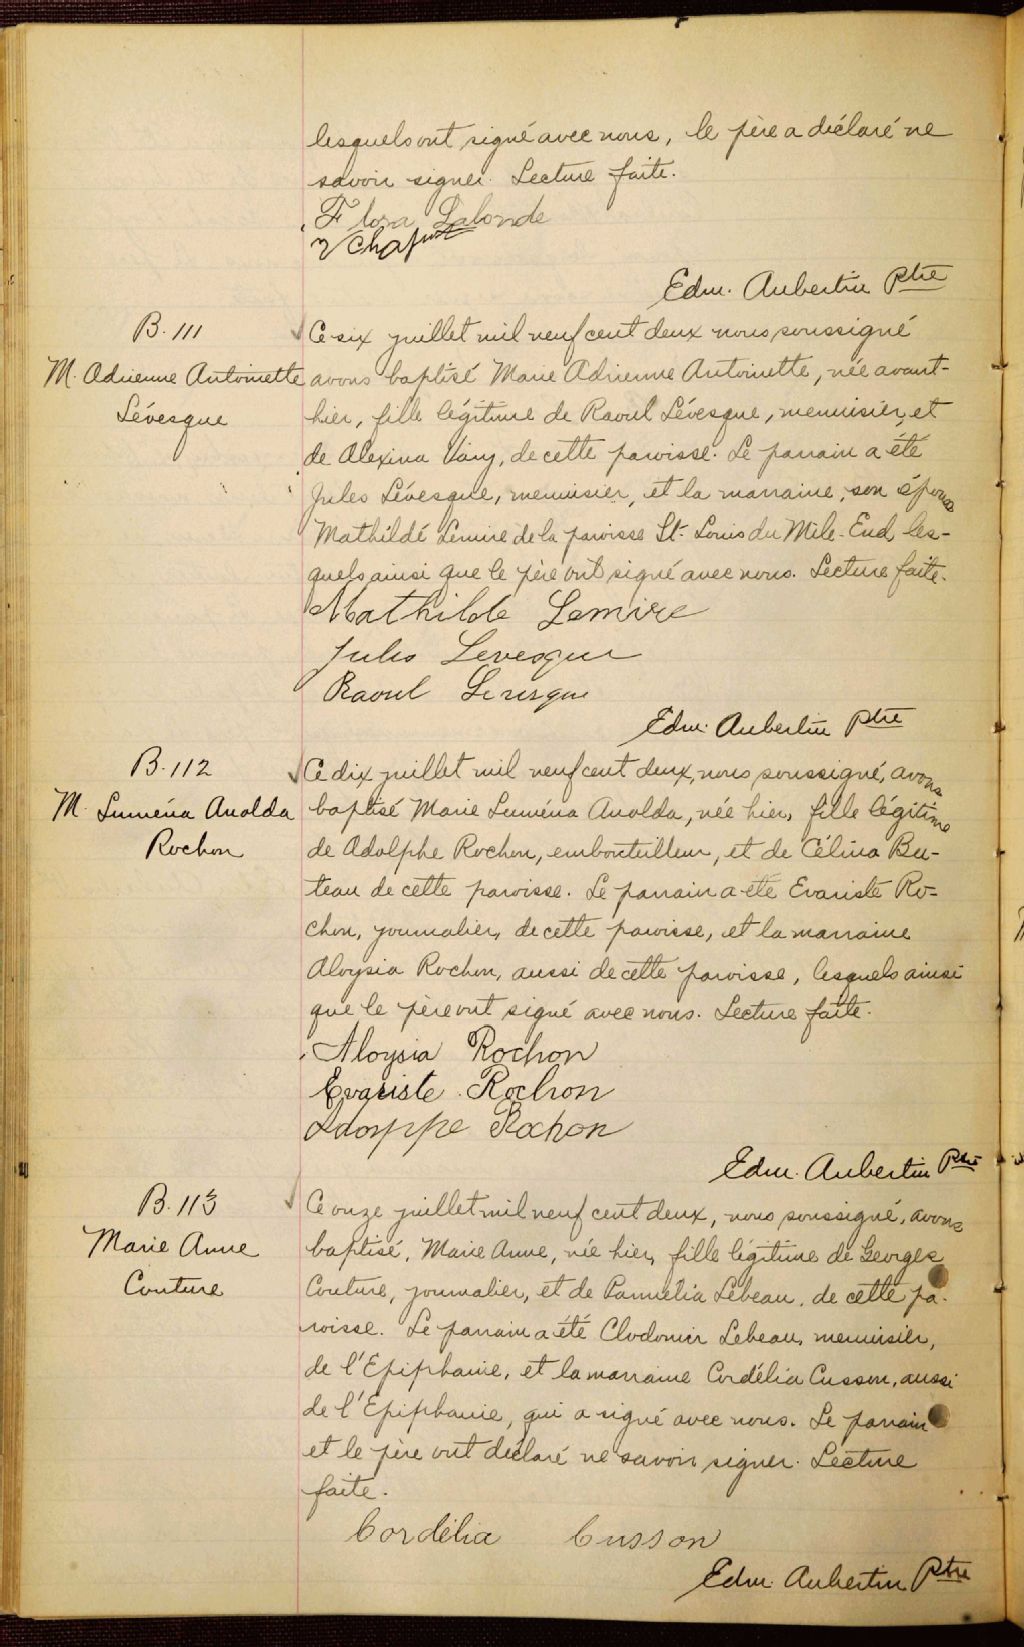 lesquels ont signé avec nous, le père a déclaré ne
savoir signer. Lecture faite.
Flora Lalonde
Edm. Aubertin Ptre
B. 111
M. Adrienne Antoinette
Lévesque
Ce six juillet mil neuf cent deux nous soussigné
avons baptisé Marie Adrienne Antoinette, née avant-
hier, fille légitime de Raoul Lévesque, menuisier, et
de Alexina Vary, de cette paroisse. Le parrain a été
Jules Lévesque, menuisier, et la marraine, son épouse
Mathildé Lemire de la paroisse St. Louis du Mile-End, les-
quels ainsi que le père ont signé avec nous. Lecture faite.
Mathilde Lemire
Jules Levesque
Raoul Levesque
Edm. Aubertin Ptre
B. 112
M. Luména Anolda
Rochon
Ce dix juillet mil neuf cent deux, nous soussigné, avons
baptisé Marie Luména Anolda, née hier, fille légitime
de Adolphe Rochon, embouteilleur, et de Célina Bu-
teau de cette paroisse. Le parrain a été Evariste Ro-
chon, journalier, de cette paroisse, et la marraine
Aloysia Rochon, aussi de cette paroisse, lesquels ainsi
que le père ont signé avec nous. Lecture faite.
Aloysia Rochon
Evariste Rochon
Rochon
Edm. Aubertin Ptre
B. 113
Marie Anne
Couture
Ce onze juillet mil neuf cent deux, nous soussigné, avons
baptisé, Marie Anne, née hier, fille légitime de Georges
Couture, journalier, et de Pamélia Lebeau, de cette pa-
roisse. Le parrain a été Clodomir Lebeau, menuisier,
de l'Epiphanie, et la marraine Cordélia Cusson, aussi
de l'Epiphanie, qui a signé avec nous. Le parrain
et le père ont déclaré ne savoir signer. Lecture
faite.
Cordélia Cusson
Edm. Aubertin Ptre